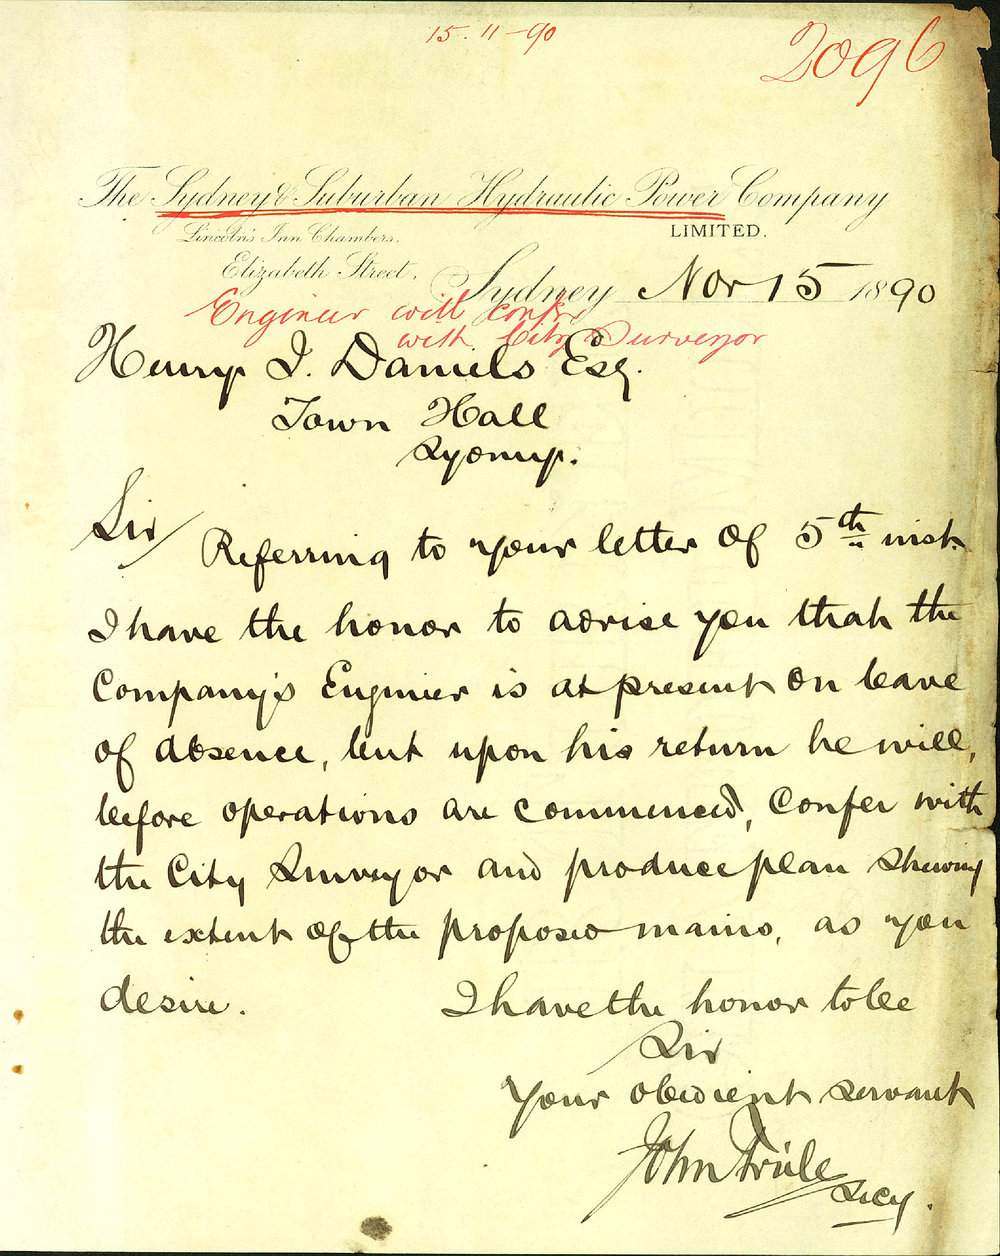 15.11-90
2096
The Sydney & Suburban Hydraulic Power Company
LIMITED.
Lincoln's Inn Chambers.
Elizabeth Street.
Sydney Nov 15 1890
Engineer will confer
with City Surveyor
Henry J. Daniels Esq.
Town Hall
Sydney.
Sir
Referring to your letter of 5th inst.
I have the honor to advise you that the
Company's Engineer is at present on leave
of absence, but upon his return he will,
before operations are commenced, confer with
the City Surveyor and produce plan shewing
the extent of the proposed mains, as you
desire.
I have the honor to be
Sir
Your obedient servant
John
Secy.